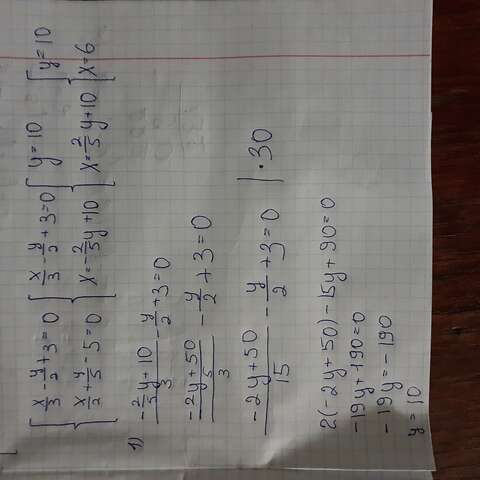 { x/3 - y/2 + 3 = 0 { x/3 - y/2 + 3 = 0 { y = 10 { y = 10
{ x/2 + y/5 - 5 = 0 { x = -2/5 y + 10 { x = -2/5 y + 10 { x = 6
1) (-2/5 y + 10)/3 - y/2 + 3 = 0
((-2y + 50)/5)/3 - y/2 + 3 = 0
(-2y + 50)/15 - y/2 + 3 = 0 | · 30
2(-2y + 50) - 15y + 90 = 0
-19y + 190 = 0
-19y = -190
y = 10